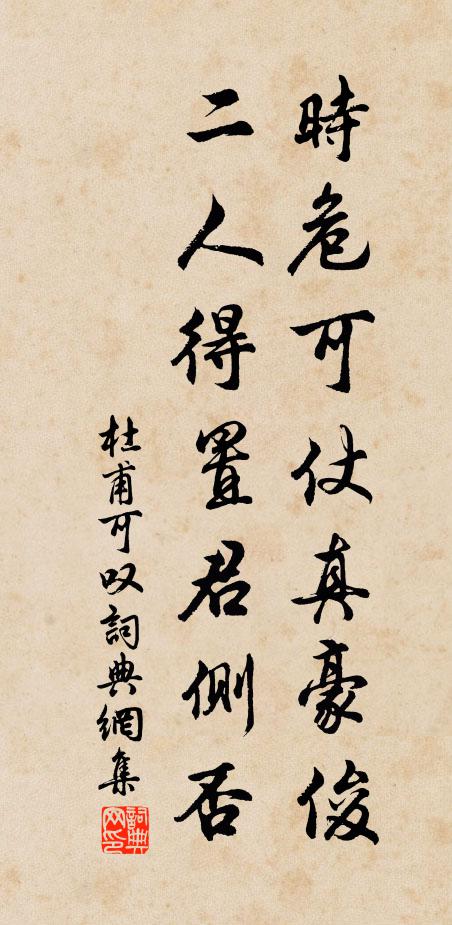 時危可仗真豪俊
二人得置君側否
杜甫可叹詞典網集
詞典网印